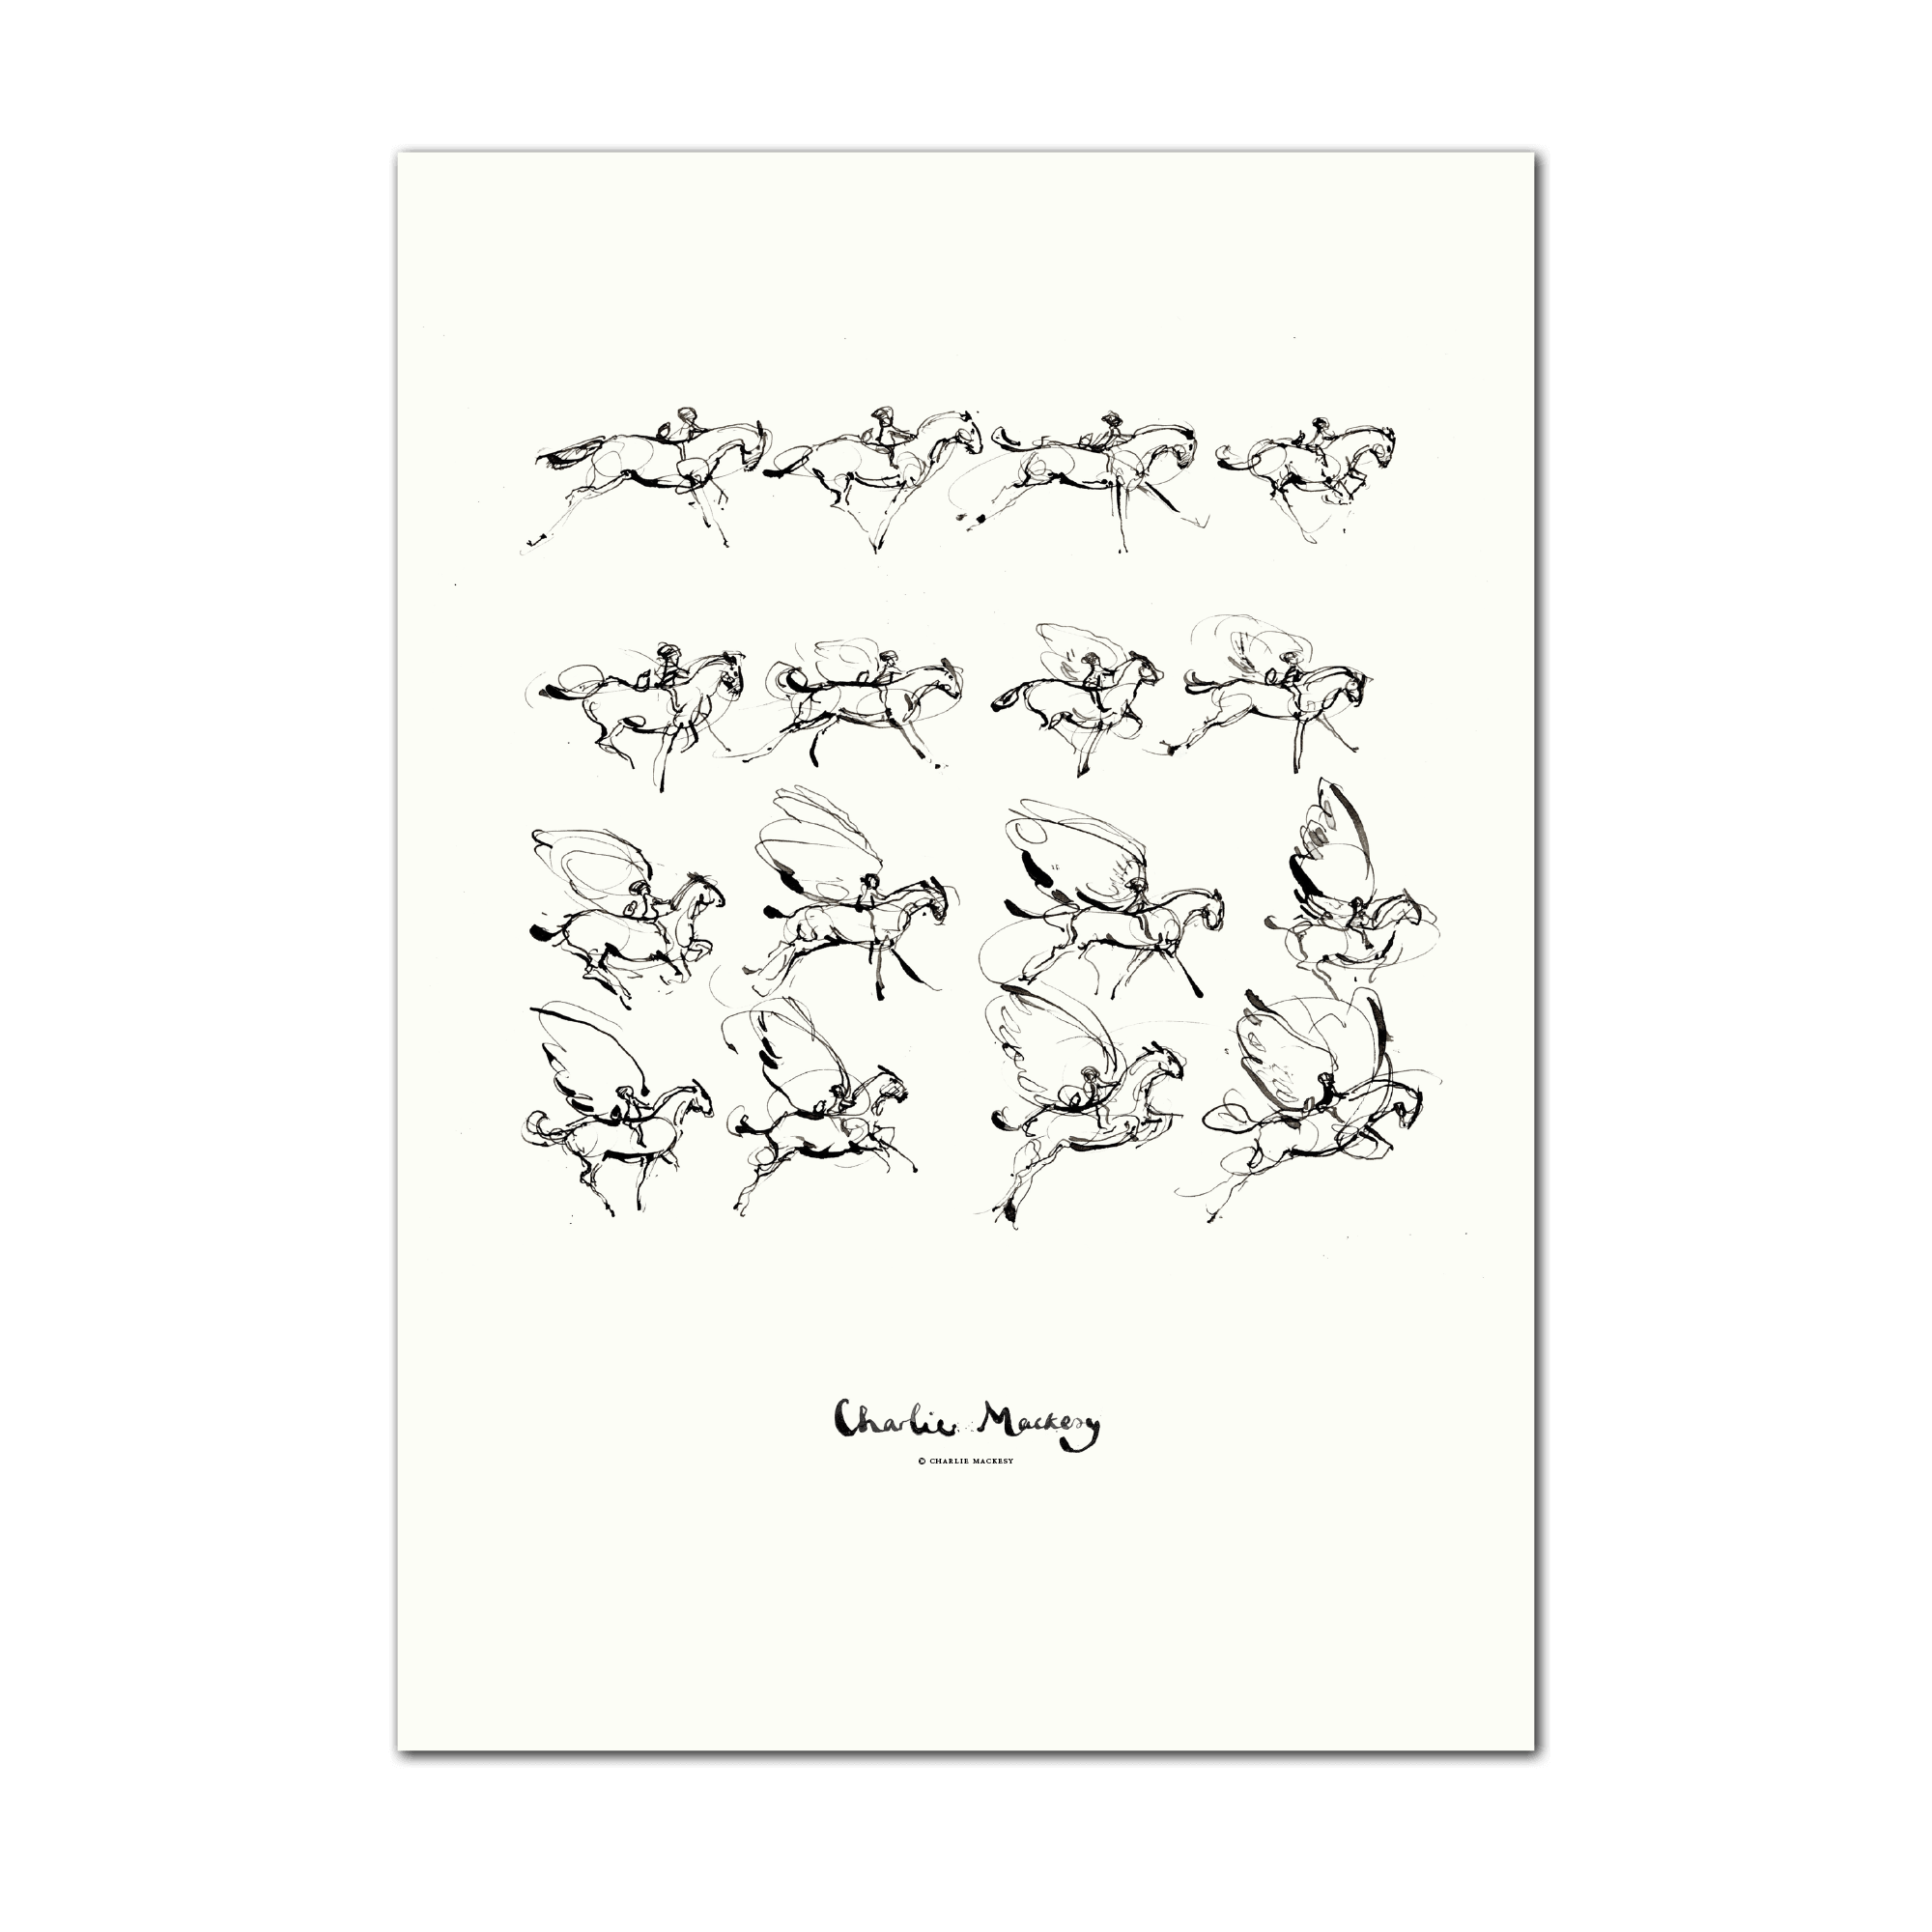 Charlie Mackesy
© CHARLIE MACKESY